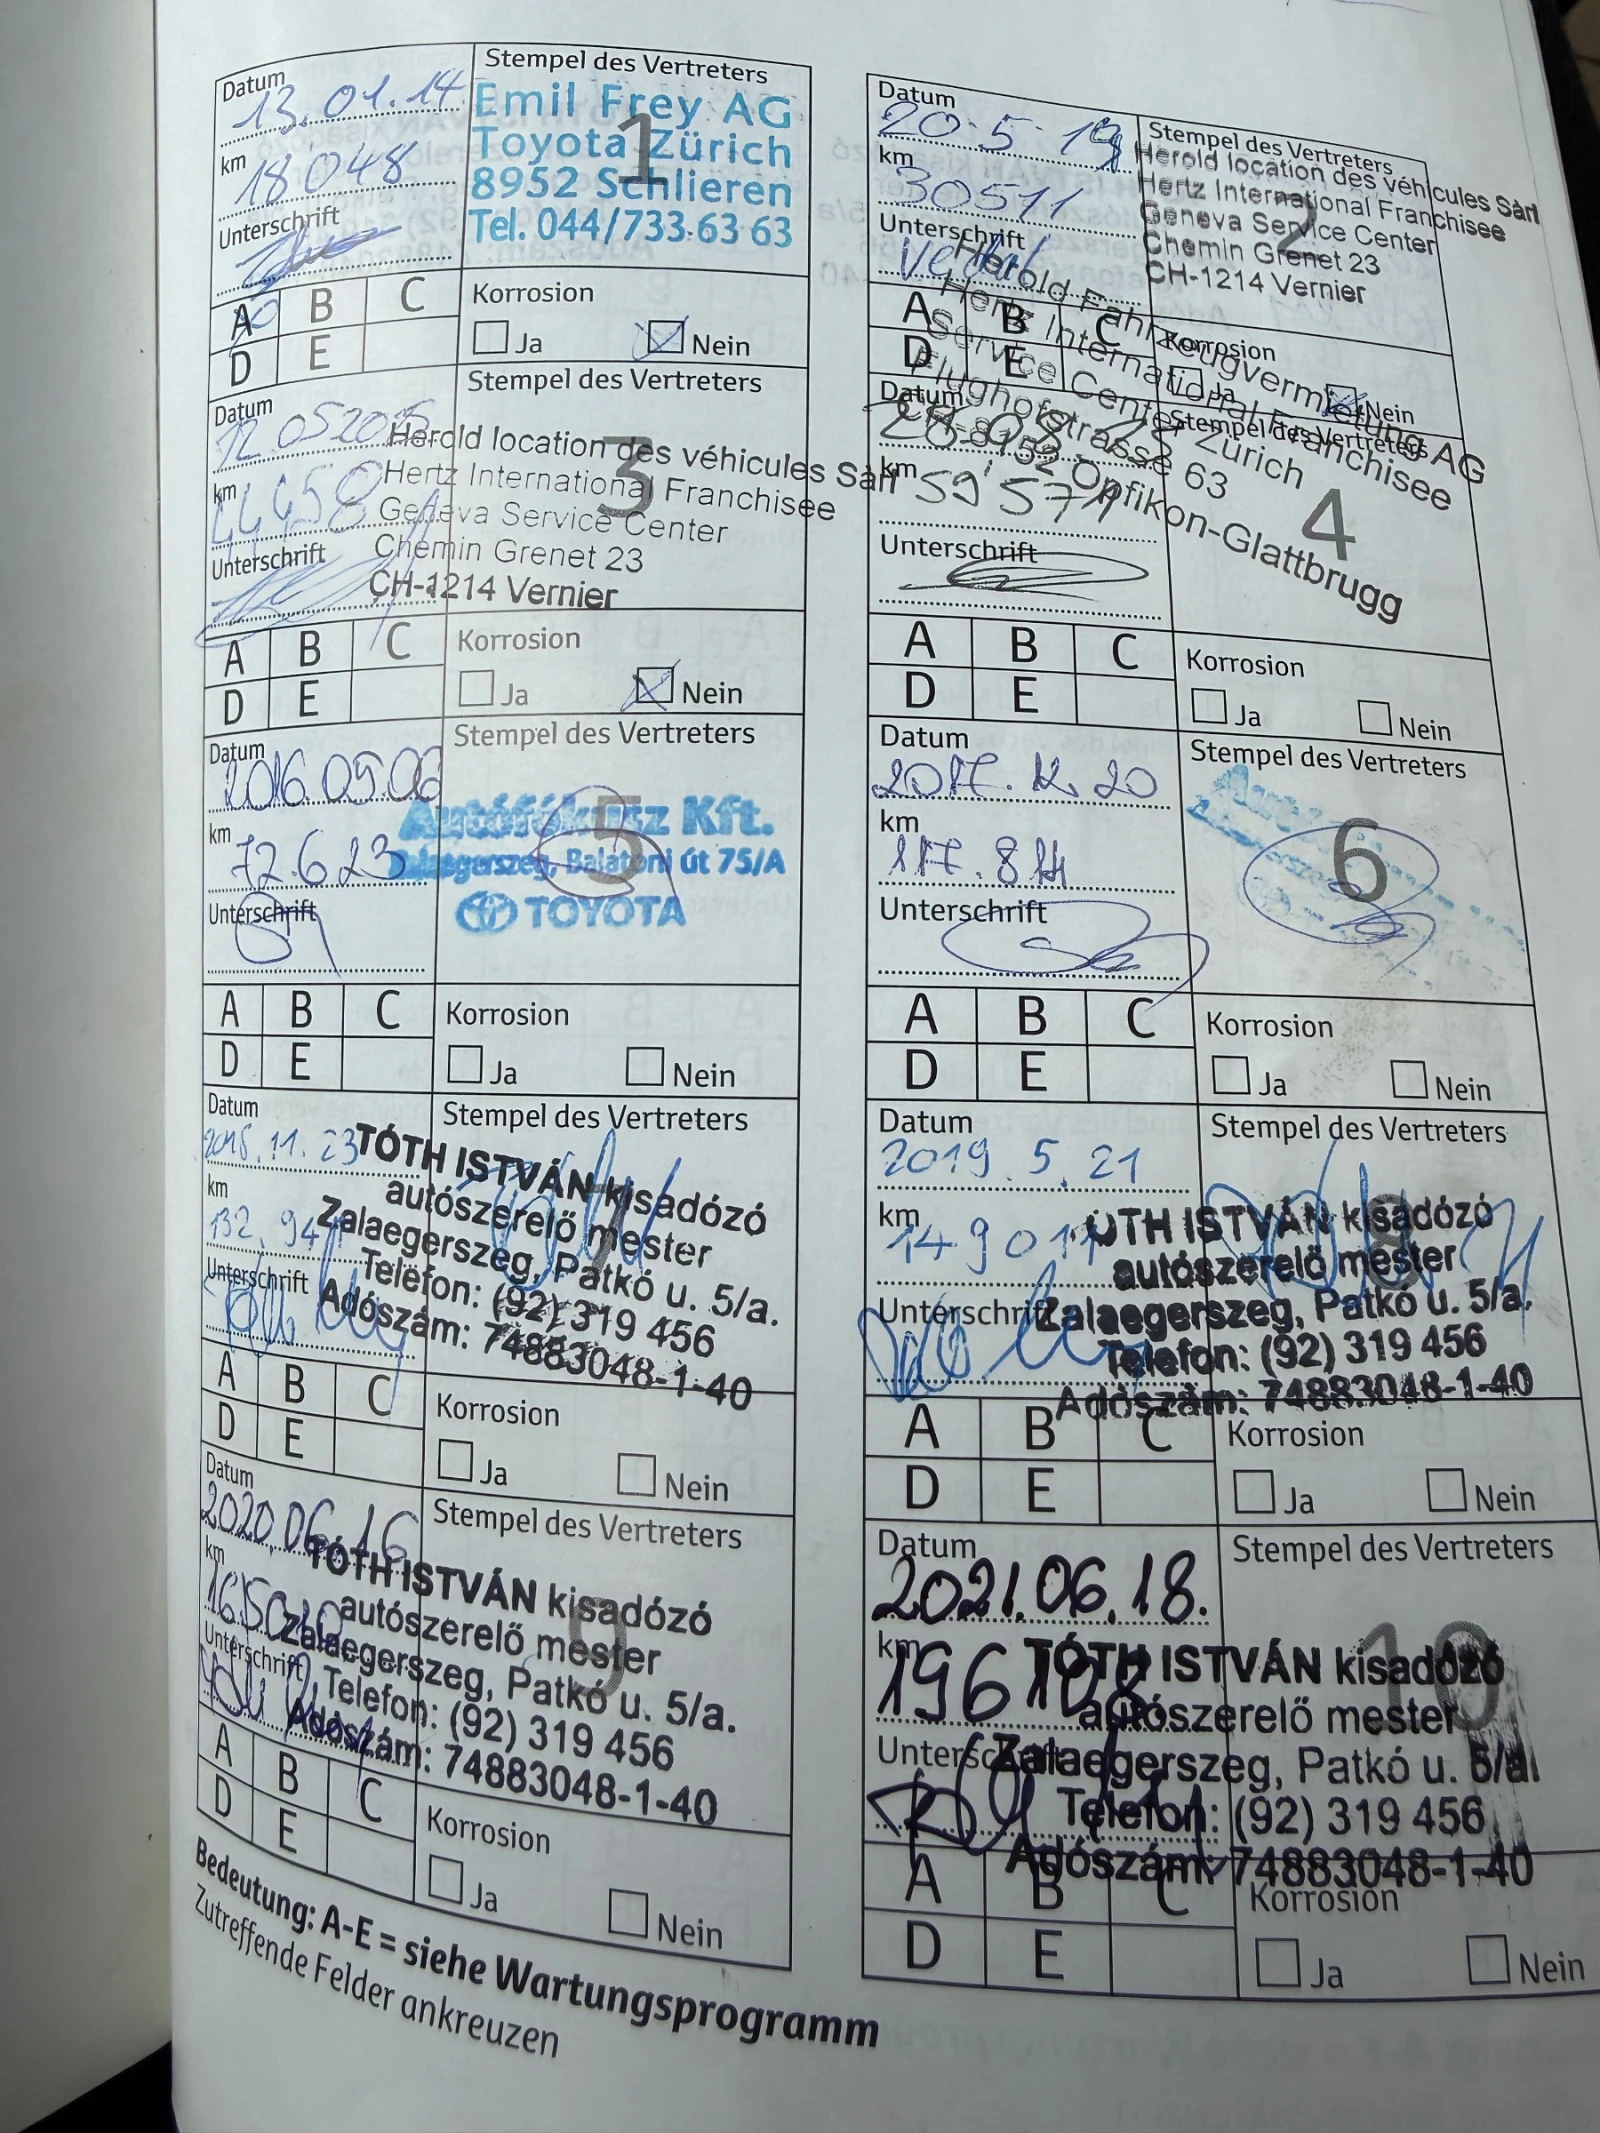 Datum
13.01.14
km
18048
Unterschrift
Stempel des Vertreters
Emil Frey AG
Toyota Zürich
8952 Schlieren
Tel. 044/733 63 63
1
A B C
D E
Korrosion
Ja Nein
Datum
20.5.14
km
30511
Unterschrift
Stempel des Vertreters
Herold location des véhicules Sàrl
Hertz International Franchisee
Geneva Service Center
Chemin Grenet 23
CH-1214 Vernier
2
A B C
D E
Korrosion
Ja Nein
Datum
12.05.2015
km
Unterschrift
Stempel des Vertreters
Herold location des véhicules Sàrl
Hertz International Franchisee
Geneva Service Center
Chemin Grenet 23
CH-1214 Vernier
3
A B C
D E
Korrosion
Ja Nein
Datum
km
59571
Unterschrift
Stempel des Vertreters
Herold Fahrzeugvermietung AG
Hertz International Franchisee
Service Center Zürich
Flughofstrasse 63
CH-8152 Opfikon-Glattbrugg
4
A B C
D E
Korrosion
Ja Nein
Datum
2016.09.06
km
72.623
Unterschrift
Stempel des Vertreters
Autófókusz Kft.
Zalaegerszeg, Balatoni út 75/A
TOYOTA
5
A B C
D E
Korrosion
Ja Nein
Datum
2017.12.20
km
117.814
Unterschrift
Stempel des Vertreters
6
A B C
D E
Korrosion
Ja Nein
Datum
11.23
km
132.941
Unterschrift
Stempel des Vertreters
TÓTH ISTVÁN kisadózó
autószerelő mester
Zalaegerszeg, Patkó u. 5/a.
Telefon: (92) 319 456
Adószám: 74883048-1-40
7
A B C
D E
Korrosion
Ja Nein
Datum
2019.5.21
km
149011
Unterschrift
Stempel des Vertreters
TÓTH ISTVÁN kisadózó
autószerelő mester
Zalaegerszeg, Patkó u. 5/a.
Telefon: (92) 319 456
Adószám: 74883048-1-40
8
A B C
D E
Korrosion
Ja Nein
Datum
2020.06.16
km
Unterschrift
Stempel des Vertreters
TÓTH ISTVÁN kisadózó
autószerelő mester
Zalaegerszeg, Patkó u. 5/a.
Telefon: (92) 319 456
Adószám: 74883048-1-40
9
A B C
D E
Korrosion
Ja Nein
Datum
2021.06.18.
km
Unterschrift
Stempel des Vertreters
TÓTH ISTVÁN kisadózó
autószerelő mester
Zalaegerszeg, Patkó u. 5/a.
Telefon: (92) 319 456
Adószám: 74883048-1-40
10
A B C
D E
Korrosion
Ja Nein
Bedeutung: A-E = siehe Wartungsprogramm
Zutreffende Felder ankreuzen